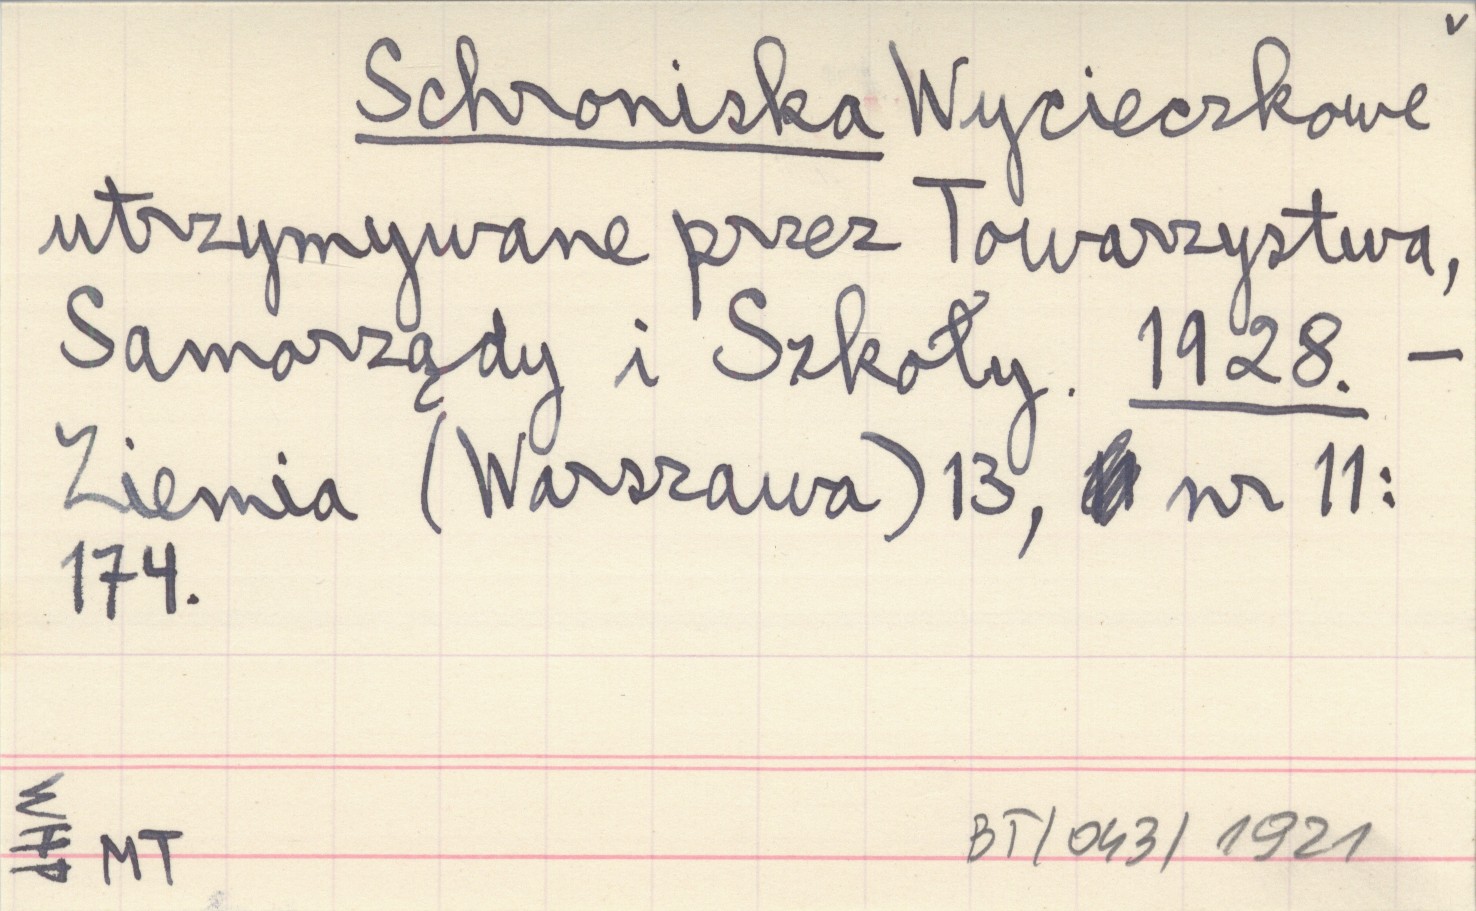 v
Schroniska Wycieczkowe
utrzymywane przez Towarzystwa,
Samorządy i Szkoły. 1928. –
Ziemia (Warszawa) 13, nr 11:
174.
WHP
MT
BT/043/1921